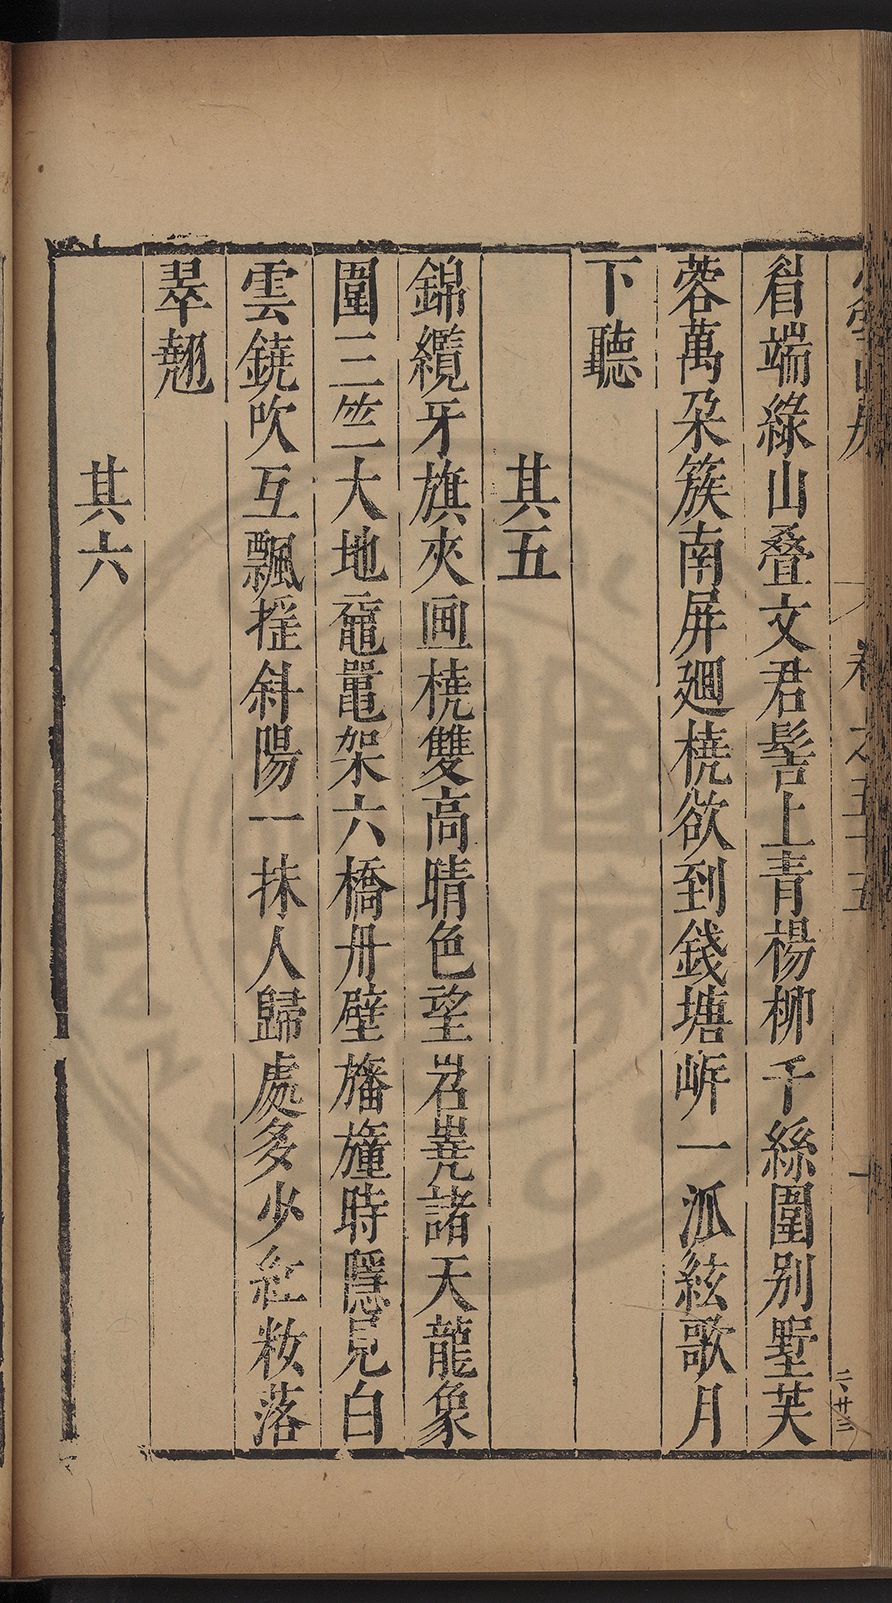 卷之五十五
十
眉端綠山叠文君髻上青楊柳千絲圍别墅芙
蓉萬朶簇南屏廻橈欲到錢塘㟁一派絃歌月
下聽
其五
錦纜牙旗夾画橈雙高晴色望岧嶤諸天龍象
圍三竺大地黿鼍架六橋丹壁旛幢時隱見白
雲鐃吹互飄揺斜陽一抹人歸處多少紅粧落
翠翹
其六
NATIONAL